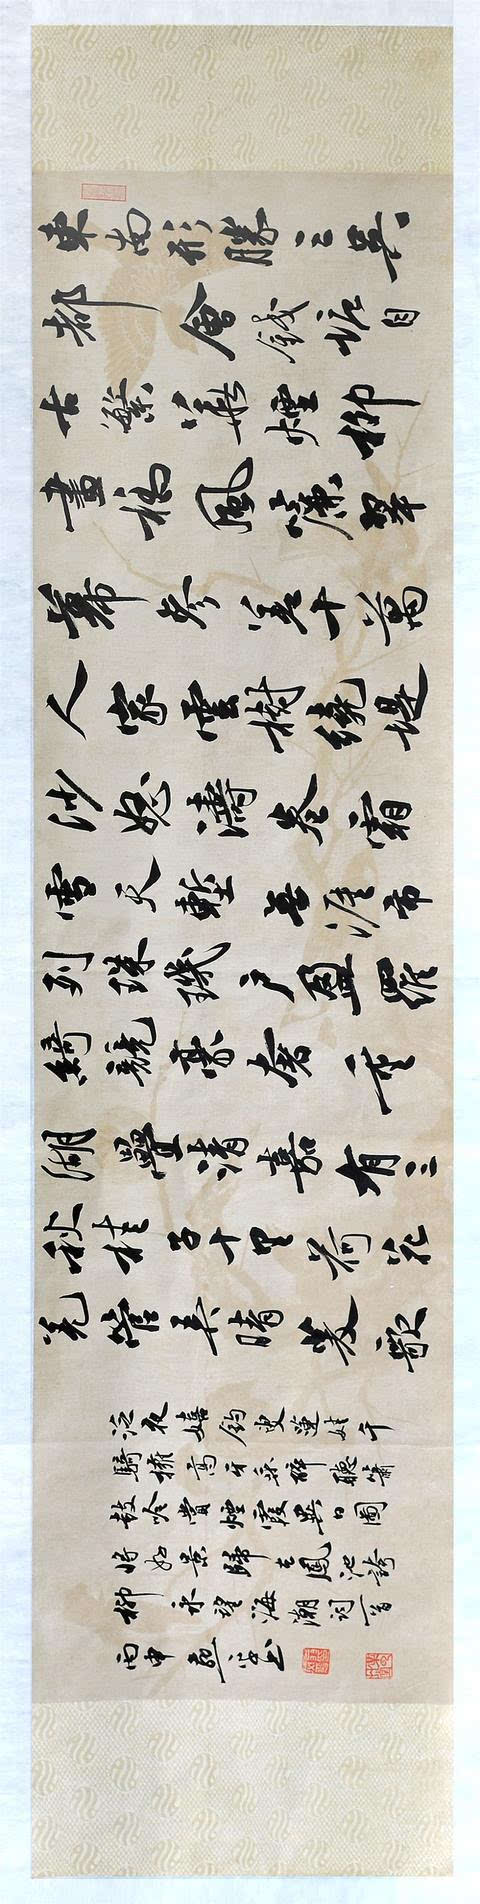 東南形勝三吳
都會錢塘自
古繁華煙柳
畫橋風簾翠
幕參差十萬
人家雲樹繞堤
沙怒濤卷霜
雪天塹無涯市
列珠璣戶盈羅
綺競豪奢重
湖疊清嘉有三
秋桂子十里荷花
羌管弄晴菱歌
泛夜嬉釣叟蓮娃千
騎擁高牙乘醉聽簫
鼓吟賞煙霞異日圖
將好景歸去鳳池誇
柳永望海潮詞一首
丙申